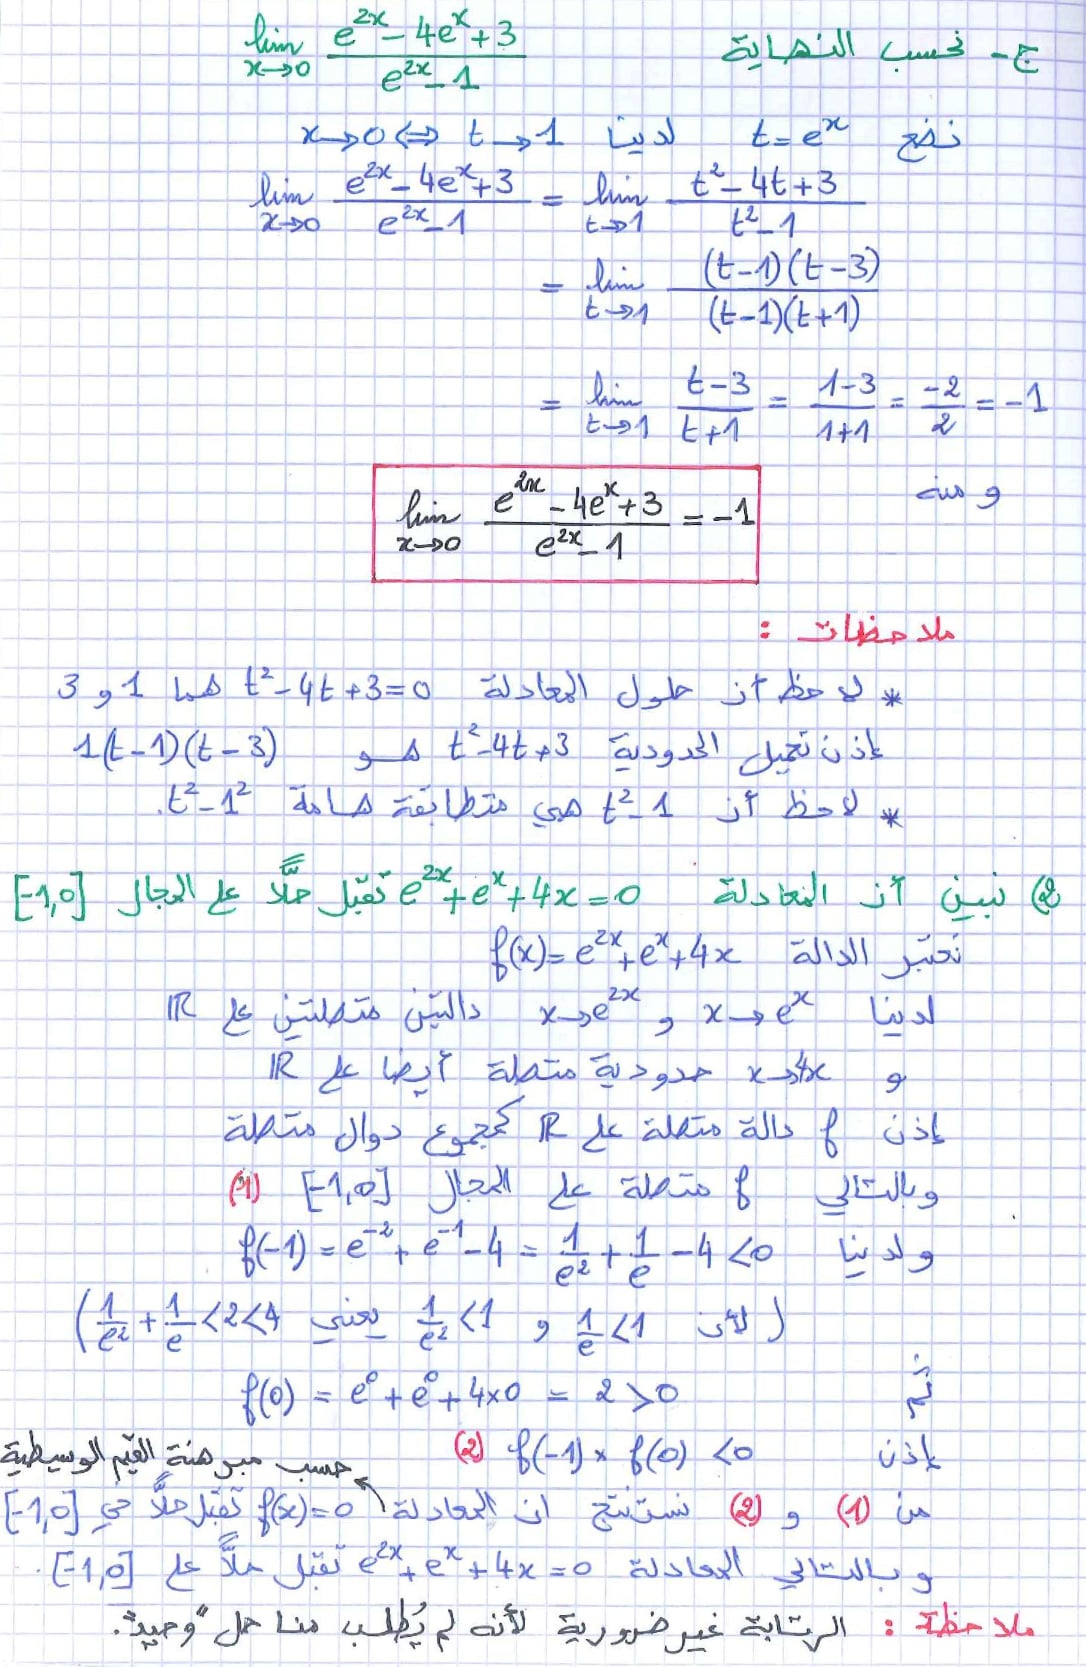 ج- نحسب النهاية lim_{x→0} (e^{2x} - 4e^x + 3)/(e^{2x} - 1)
نضع t = e^x لدينا x→0 ⇔ t→1
lim_{x→0} (e^{2x} - 4e^x + 3)/(e^{2x} - 1) = lim_{t→1} (t² - 4t + 3)/(t² - 1)
= lim_{t→1} (t-1)(t-3)/(t-1)(t+1)
= lim_{t→1} (t-3)/(t+1) = (1-3)/(1+1) = -2/2 = -1
ومنه
lim_{x→0} (e^{2x} - 4e^x + 3)/(e^{2x} - 1) = -1
ملاحظات :
* لاحظ أن حلول المعادلة t² - 4t + 3 = 0 هما 1 و 3
إذن تعميل الحدودية t² - 4t + 3 هو 1(t-1)(t-3)
* لاحظ أن t² - 1 هي متطابقة هامة t² - 1².
2) نبين أن المعادلة e^{2x} + e^x + 4x = 0 تقبل حلاًّ على المجال [-1,0]
نعتبر الدالة f(x) = e^{2x} + e^x + 4x
لدينا x→e^x و x→e^{2x} دالتين متصلتين على ℝ
و x→4x حدودية متصلة أيضا على ℝ
إذن f دالة متصلة على ℝ كمجموع دوال متصلة
وبالتالي f متصلة على المجال [-1,0] (1)
ولدينا f(-1) = e^{-2} + e^{-1} - 4 = 1/e² + 1/e - 4 < 0
(لأن 1/e < 1 و 1/e² < 1 يعني 1/e² + 1/e < 2 < 4)
ثم f(0) = e^0 + e^0 + 4×0 = 2 > 0
إذن f(-1) × f(0) < 0 (2)
حسب مبرهنة القيم الوسيطية
من (1) و (2) نستنتج ان المعادلة f(x) = 0 تقبل حلاًّ في [-1,0]
وبالتالي المعادلة e^{2x} + e^x + 4x = 0 تقبل حلاًّ على [-1,0].
ملاحظة : الرتابة غير ضرورية لأنه لم يُطلب منا حل "وحيد".